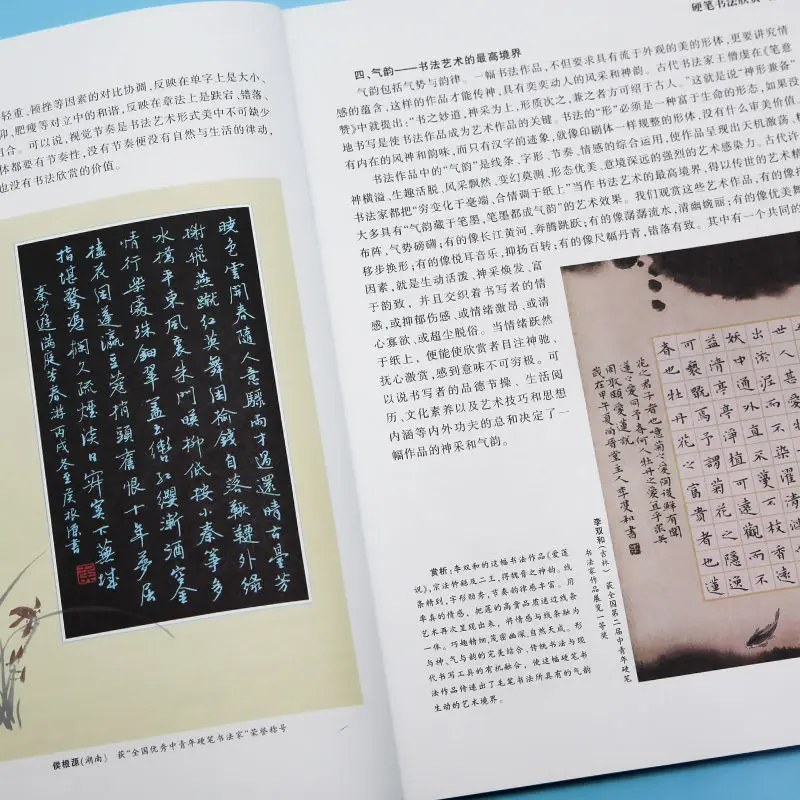 轻重、顿挫等因素的对比协调,反映在单字上是大小、
仰、肥瘦等对立中的和谐,反映在章法上是跌宕、错落、
相合。可以说,视觉节奏是书法艺术形式美中不可缺少
体都要有节奏性,没有节奏便没有自然与生活的律动,
也没有书法欣赏的价值。
曉色雲開春隨人意驟雨才過還晴古臺芳
榭飛燕蹴紅英舞困榆錢自落鞦韆外綠
水橋平東風裏朱門暎柳低按小秦箏多
情行樂處珠鈿翠蓋玉轡紅纓漸酒空金
榼花困蓬瀛豆蔻梢頭舊恨十年夢屈
指堪驚憑欄久疏煙淡日寂寞下蕪城
秦少游滿庭芳春游丙戌冬至侯根源書
侯根源(湖南) 获“全国优秀中青年硬笔书法家”荣誉称号
硬笔书法欣赏
四、气韵——书法艺术的最高境界
气韵包括气势与韵律。一幅书法作品,不但要求具有流于外观的美的形体,更要讲究情
感的蕴含,这样的作品才能传神,具有奕奕动人的风采和神韵。古代书法家王僧虔在《笔意
赞》中就提出:“书之妙道,神采为上,形质次之,兼之者方可绍于古人。”这就是说“神形兼备”
地书写是使书法作品成为艺术作品的关键。书法的“形”必须是一种富于生命的形态,如果没
有内在的风神和韵味,而只有汉字的迹象,就像印刷体一样规整的形体,没有什么审美价值。
书法作品中的“气韵”是线条、字形、节奏、情感的综合运用,使作品呈现出天机激荡、精
神横溢、生趣活脱、风采飘然、变幻莫测、形态优美、意境深远的强烈的艺术感染力。古代许
书法家都把“穷变化于毫端,合情调于纸上”当作书法艺术的最高境界,得以传世的艺术精
大多具有“气韵藏于笔墨,笔墨都成气韵”的艺术效果。我们观赏这些艺术作品,有的像排
布阵,气势磅礴;有的像长江黄河,奔腾跳跃;有的像潺潺流水,清幽婉丽;有的像优美舞
移步换形;有的像悦耳音乐,抑扬百转;有的像尺幅丹青,错落有致。其中有一个共同的
因素,就是生动活泼、神采焕发、富
于韵致,并且交织着书写者的情
感,或抑郁伤感,或情绪激昂,或清
心寡欲,或超尘脱俗。当情绪跃然
于纸上,便能使欣赏者目注神驰、
抚心激赏,感到意味不可穷极。可
以说书写者的品德节操、生活阅
历、文化素养以及艺术技巧和思想
内涵等内外功夫的总和决定了一
幅作品的神采和气韵。
出淤泥而不染濯清漣而不
妖中通外直不蔓不枝香遠
益清亭亭淨植可遠觀而不
可褻翫焉予謂菊花之隱逸
者也牡丹花之富貴者也蓮
花之君子者也噫菊之愛陶後鮮有聞
蓮之愛同予者何人牡丹之愛宜乎眾矣
周敦頤愛蓮說
李双和(吉林) 获全国第二届中青年硬笔
书法家作品展览一等奖
赏析:李双和的这幅书法作品《爱莲
说》,宗法钟繇及二王,得魏晋之神韵。线
条精到,字形劲秀,节奏韵律感丰富。用
率真的情感,把莲的高贵品质通过线条
艺术再次呈现出来,将情感与线条融为
一体。巧趣精细,茂密幽深,自然天成。形
与神、气与韵的完美结合,传统书法与现
代书写工具的有机融合,使这幅硬笔书
法作品传递出了毛笔书法所具有的气韵
生动的艺术境界。